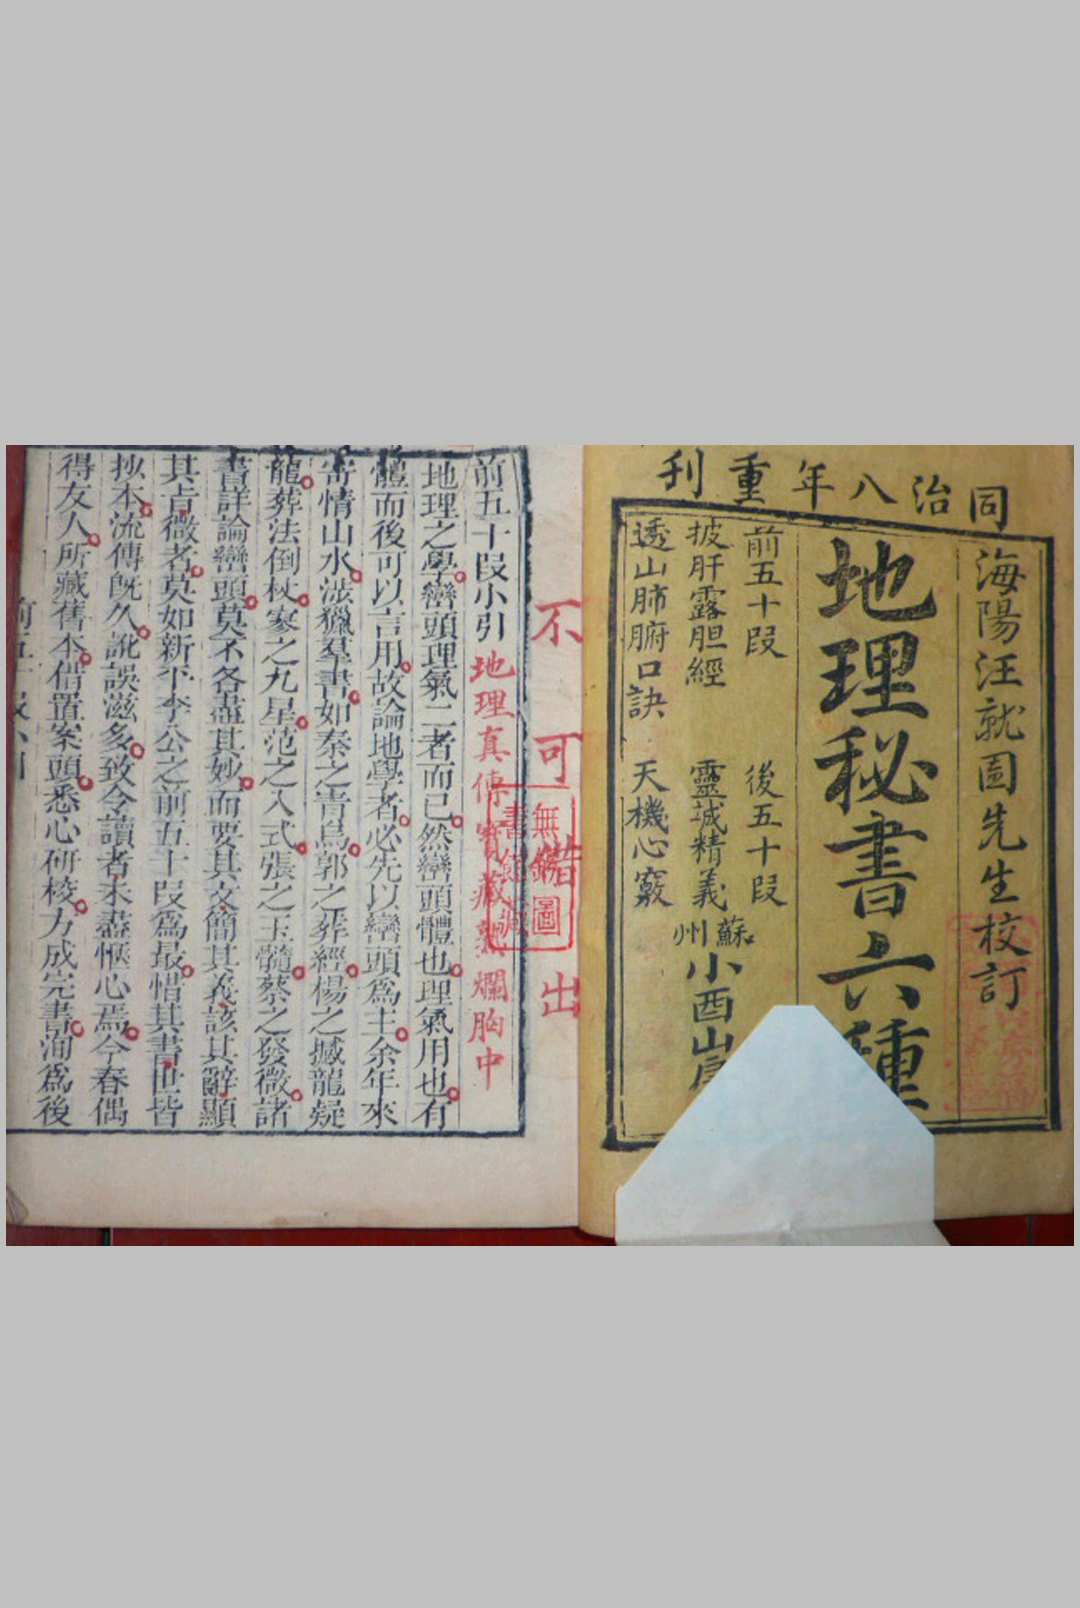 同治八年重刊
海陽汪就圖先生校訂
地理秘書六種
前五十叚
後五十叚
披肝露胆經
靈城精義
透山肺腑口訣
天機心竅
蘇州
小酉山
不可借出
無
圖
前五十叚小引
地理真傳寶藏熟爛胸中
地理之學巒頭理氣二者而已然巒頭體也理氣用也有
體而後可以言用故論地學者必先以巒頭爲主余年來
寄情山水涉獵羣書如秦之青烏郭之葬經楊之撼龍疑
龍葬法倒杖寥之九星范之八式張之玉髓蔡之發微諸
書詳論巒頭莫不各盡其妙而要其文簡其義該其辭顯
其㫖微者莫如新平李公之前五十叚爲最惜其書世皆
抄本流傳旣久訛誤滋多致令讀者未盡愜心焉今春偶
得友人所藏舊本借置案頭悉心研校方成完書洵爲後